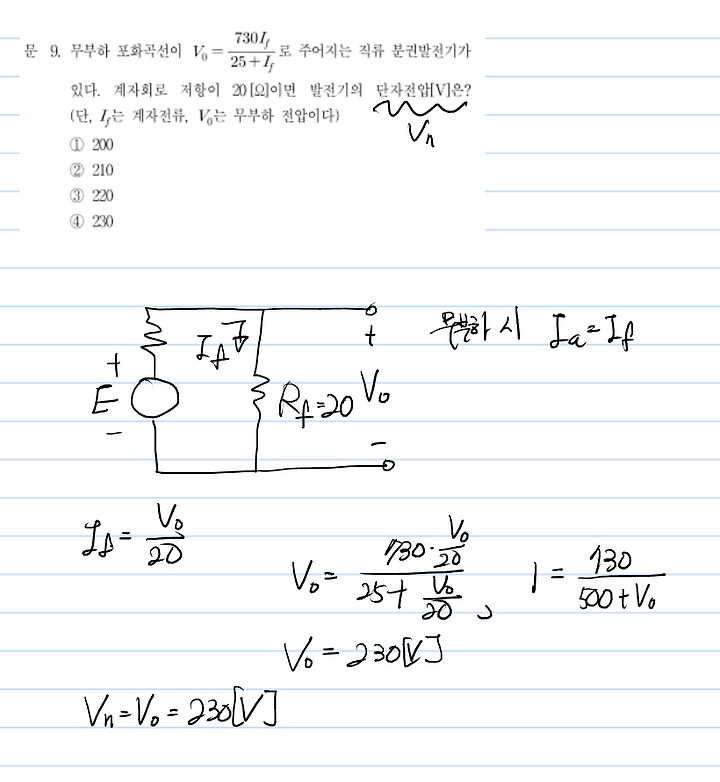 문 9. 무부하 포화곡선이 V₀ = 730I_f / (25 + I_f) 로 주어지는 직류 분권발전기가
있다. 계자회로 저항이 20[Ω]이면 발전기의 단자전압[V]은?
(단, I_f는 계자전류, V₀는 무부하 전압이다)
Vn
① 200
② 210
③ 220
④ 230
무부하 시 Ia = If
+ If +
E Rf = 20 V₀
− −
If = V₀ / 20
V₀ = (730 · V₀/20) / (25 + V₀/20) , 1 = 730 / (500 + V₀)
V₀ = 230[V]
Vn = V₀ = 230[V]